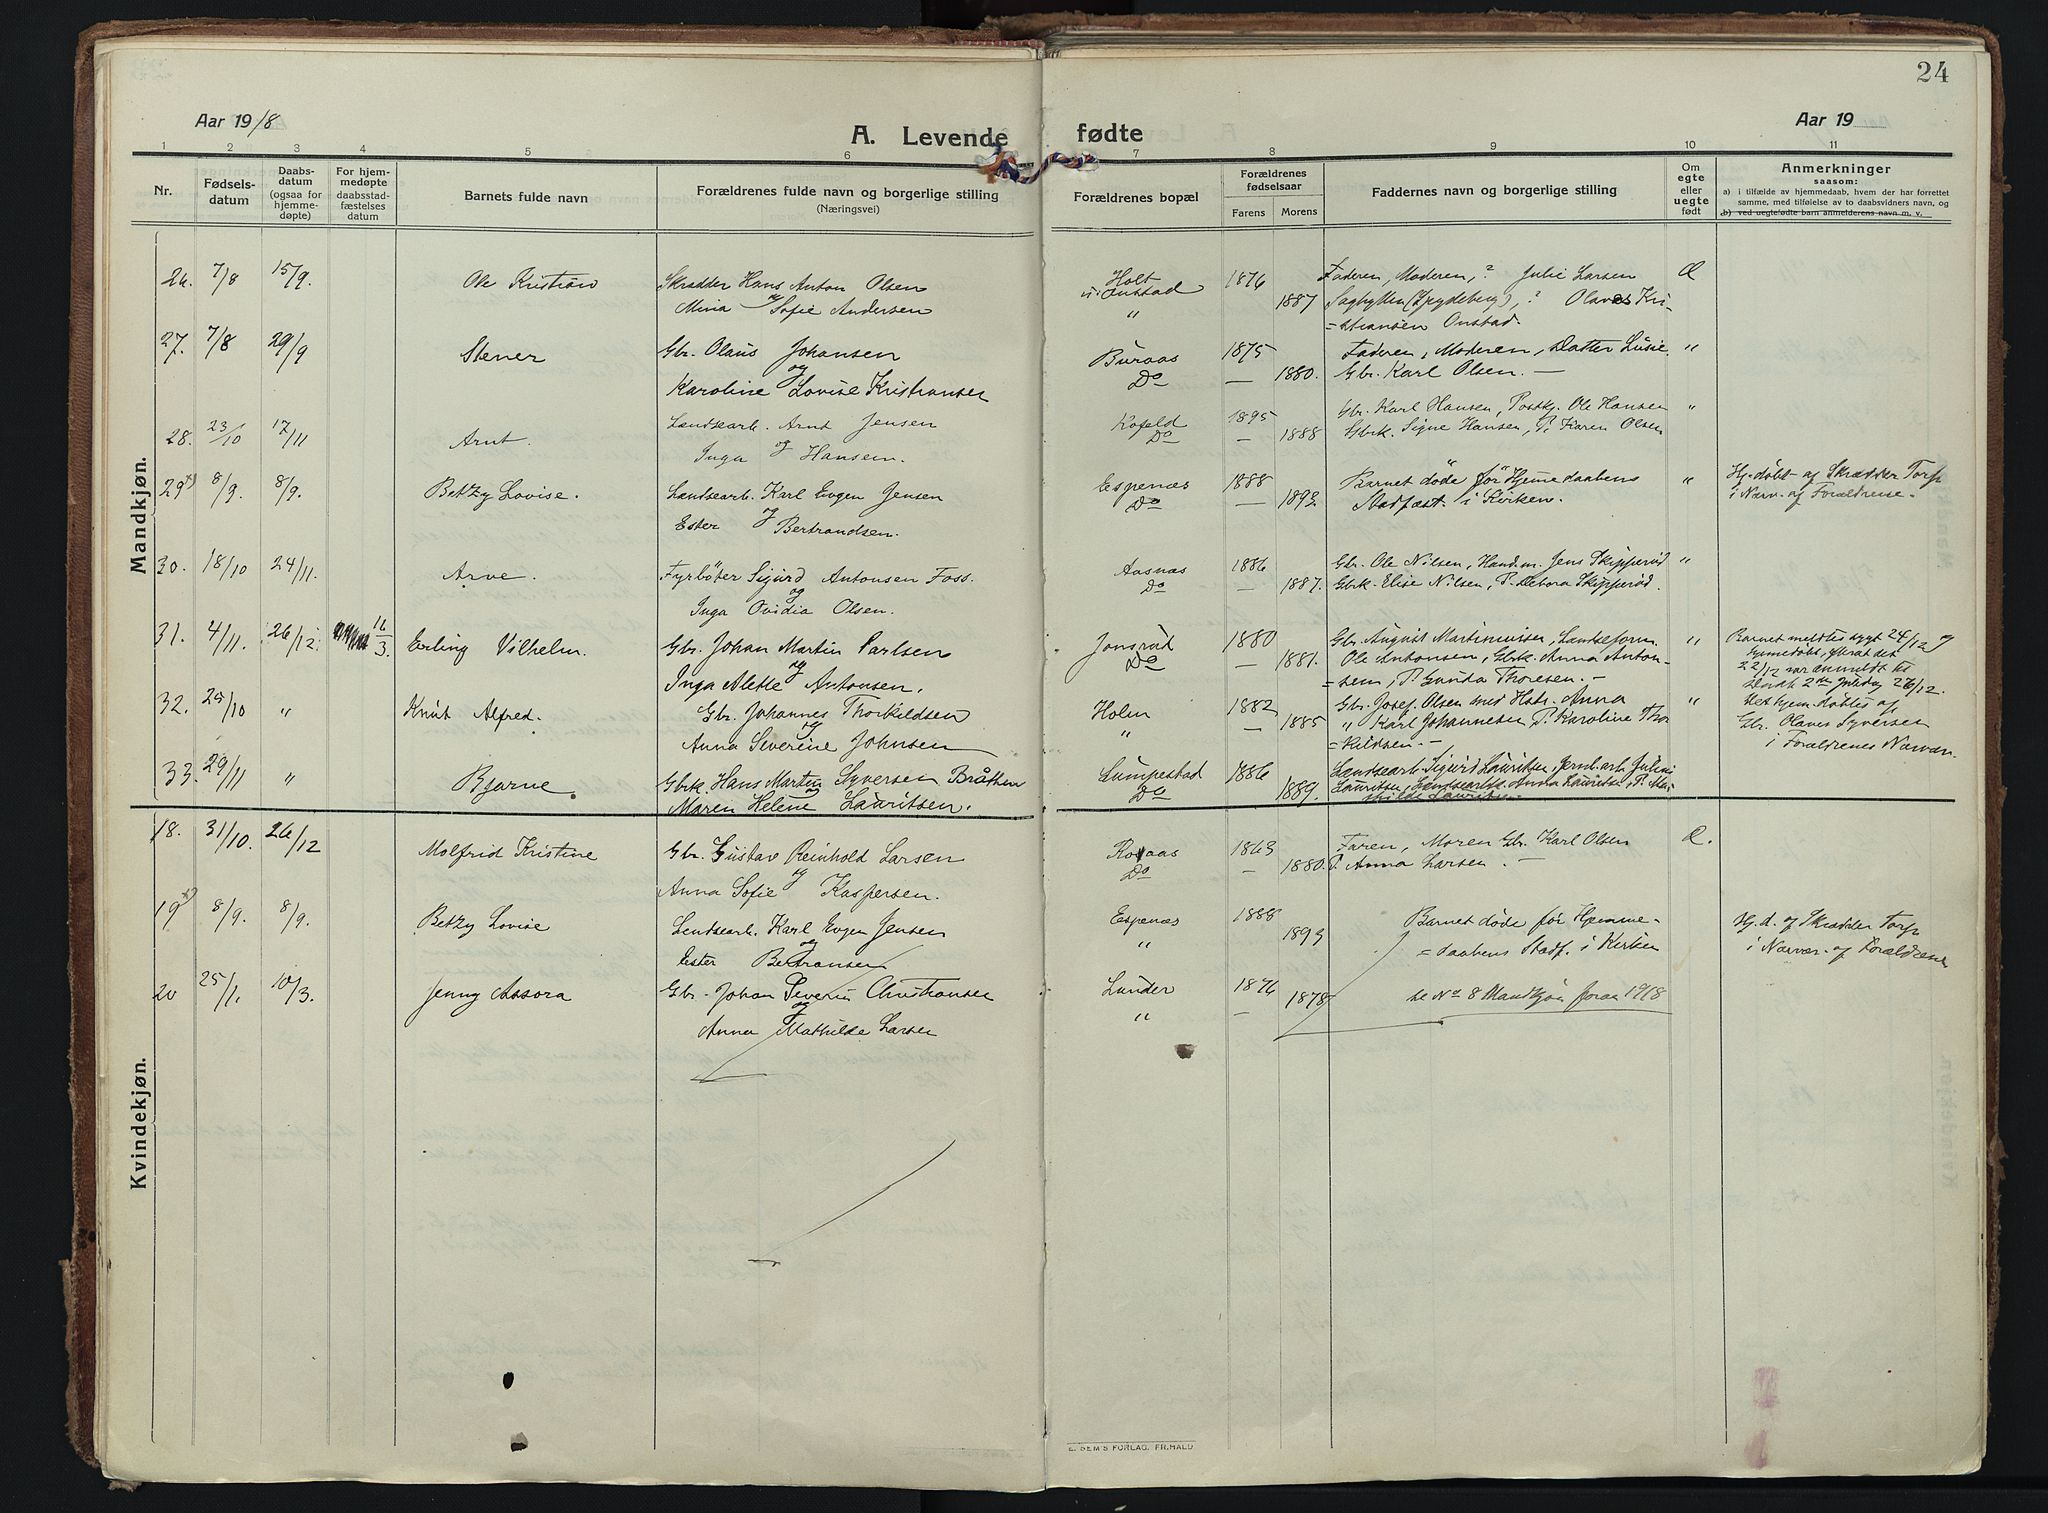 24
Aar 1918
A. Levende fødte
Aar 19
1 2 3 4 5 6 7 8 9 10 11
Nr.
Fødsels-
datum
Daabs-
datum
(ogsaa for
hjemme-
døpte)
For hjem-
medøpte
daabsstad-
fæstelses
datum
Barnets fulde navn
Forældrenes fulde navn og borgerlige stilling
(Næringsvei)
Forældrenes bopæl
Forældrenes
fødselsaar
Farens Morens
Faddernes navn og borgerlige stilling
Om
egte
eller
uegte
født
Anmerkninger
saasom:
a) i tilfælde av hjemmedaab, hvem der har forrettet
samme, med tilføielse av to daabsvidners navn, og
b) ved uegtefødte barn anmelderens navn m. v.
Mandkjøn.
26. 7/8 15/9. Ole Kristian Skrædder Hans Anton Olsen Holt 1876 Faderen, Moderen, ? Julie Larsen
og
Mina Sofie Andersen u. Onstad 1887 Sagbytten (Spydeberg), ? Olaves Kri-
" =stiansen Onstad.
27. 7/8 29/9 Stener Gbr. Olaus Johansen Buraas 1875 Faderen, Moderen, Datter Lusie "
og
Karoline Lovise Kristiansen Do — 1880. Gbr. Karl Olsen. —
28. 23/10 17/11 Arnt. Landsearb. Arnt Jensen Kofeld 1895 Gbr. Karl Hansen, Postkj. Ole Hansen "
og
Inga Hansen. Do — 1888 Gbrk. Signe Hansen, P. Karen Olsen
29x) 8/9. 8/9. Betzy Lovise. Landsearb. Karl Evgen Jensen Espenæs 1888 Barnet døde før Hjemmedaabens " Hj. døbt af Skrædder Torp
og
Ester Bertrandsen. Do — 1893. Stadfæst. i Kirken. i Nærv. af Forældrene.
30. 18/10 24/11. Arve. Fyrbøter Sigurd Antonsen Foss. Aasnæs 1886 Gbr. Ole Nilsen, Handm. Jens Skipperød "
og
Inga Ovidia Olsen. Do — 1887. Gbrk. Elise Nilsen, P. Debora Skipperød.
31. 4/11. 26/12. 16/3. Erling Vilhelm. Gbr. Johan Martin Carlsen Jonsrød 1880 Gbr. August Martinusen, Landseform. " Barnet meldtes sygt 24/12 og
og
Inga Alette Antonsen. Do — 1881. Ole Antonsen, Gbrk. Anna Anton-
=sen, P. Gunda Thoresen. —
22/12 var anmeldt til
Daab 2den Juledag 26/12.
32. 25/10 " Knut Alfred. Gbr. Johannes Thorkildsen Holm 1882 Gbr. Josef Olsen med Hstr. Anna "
og
Anna Severine Johnsen " — 1885 " Karl Johannesen P. Karoline Thor
=kildsen. —
Gbr. Olaves Syversen
i Forældrenes Nærvær.
33. 29/11 " Bjarne. Gbrk. Hans Martin Syversen Bråthen Lumpestad 1886 Landsearb. Sigurd Lauritsen, Jernb.arb. Julius
og
Maren Helene Lauritsen. Do 1889. Lauritsen, Landsearbk. Anna Lauritsen, P. Ma-
thilde Lauritsen.
Kvindekjøn.
18. 31/10. 26/12 Molfrid Kristine Gbr. Gustav Reinhold Larsen Roaas 1863 Faren, Moren Gbr. Karl Olsen
og
Anna Sofie Kaspersen. Do — 1880. P. Anna Larsen. —
19x) 8/9. 8/9. Betzy Lovise Landsearb. Karl Evgen Jensen Espenæs 1888 Barnet døde før Hjemme= Hj. d. af Skrædder Torp
og
Ester Bertransen " 1893 =daabens Stadf. i Kirken i Nærvær. af Forældrene
20 25/1. 10/3. Jenny Assora Gbr. Johan Severin Christiansen Lunder 1876 se No 8 Mandkjøn foran 1918
og
Anna Mathilde Larsen " — 1878
E. SEM'S FORLAG, FR.HALD